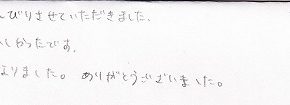 びりさせていただきました.
しかったです.
なりました。ありがとうございました。